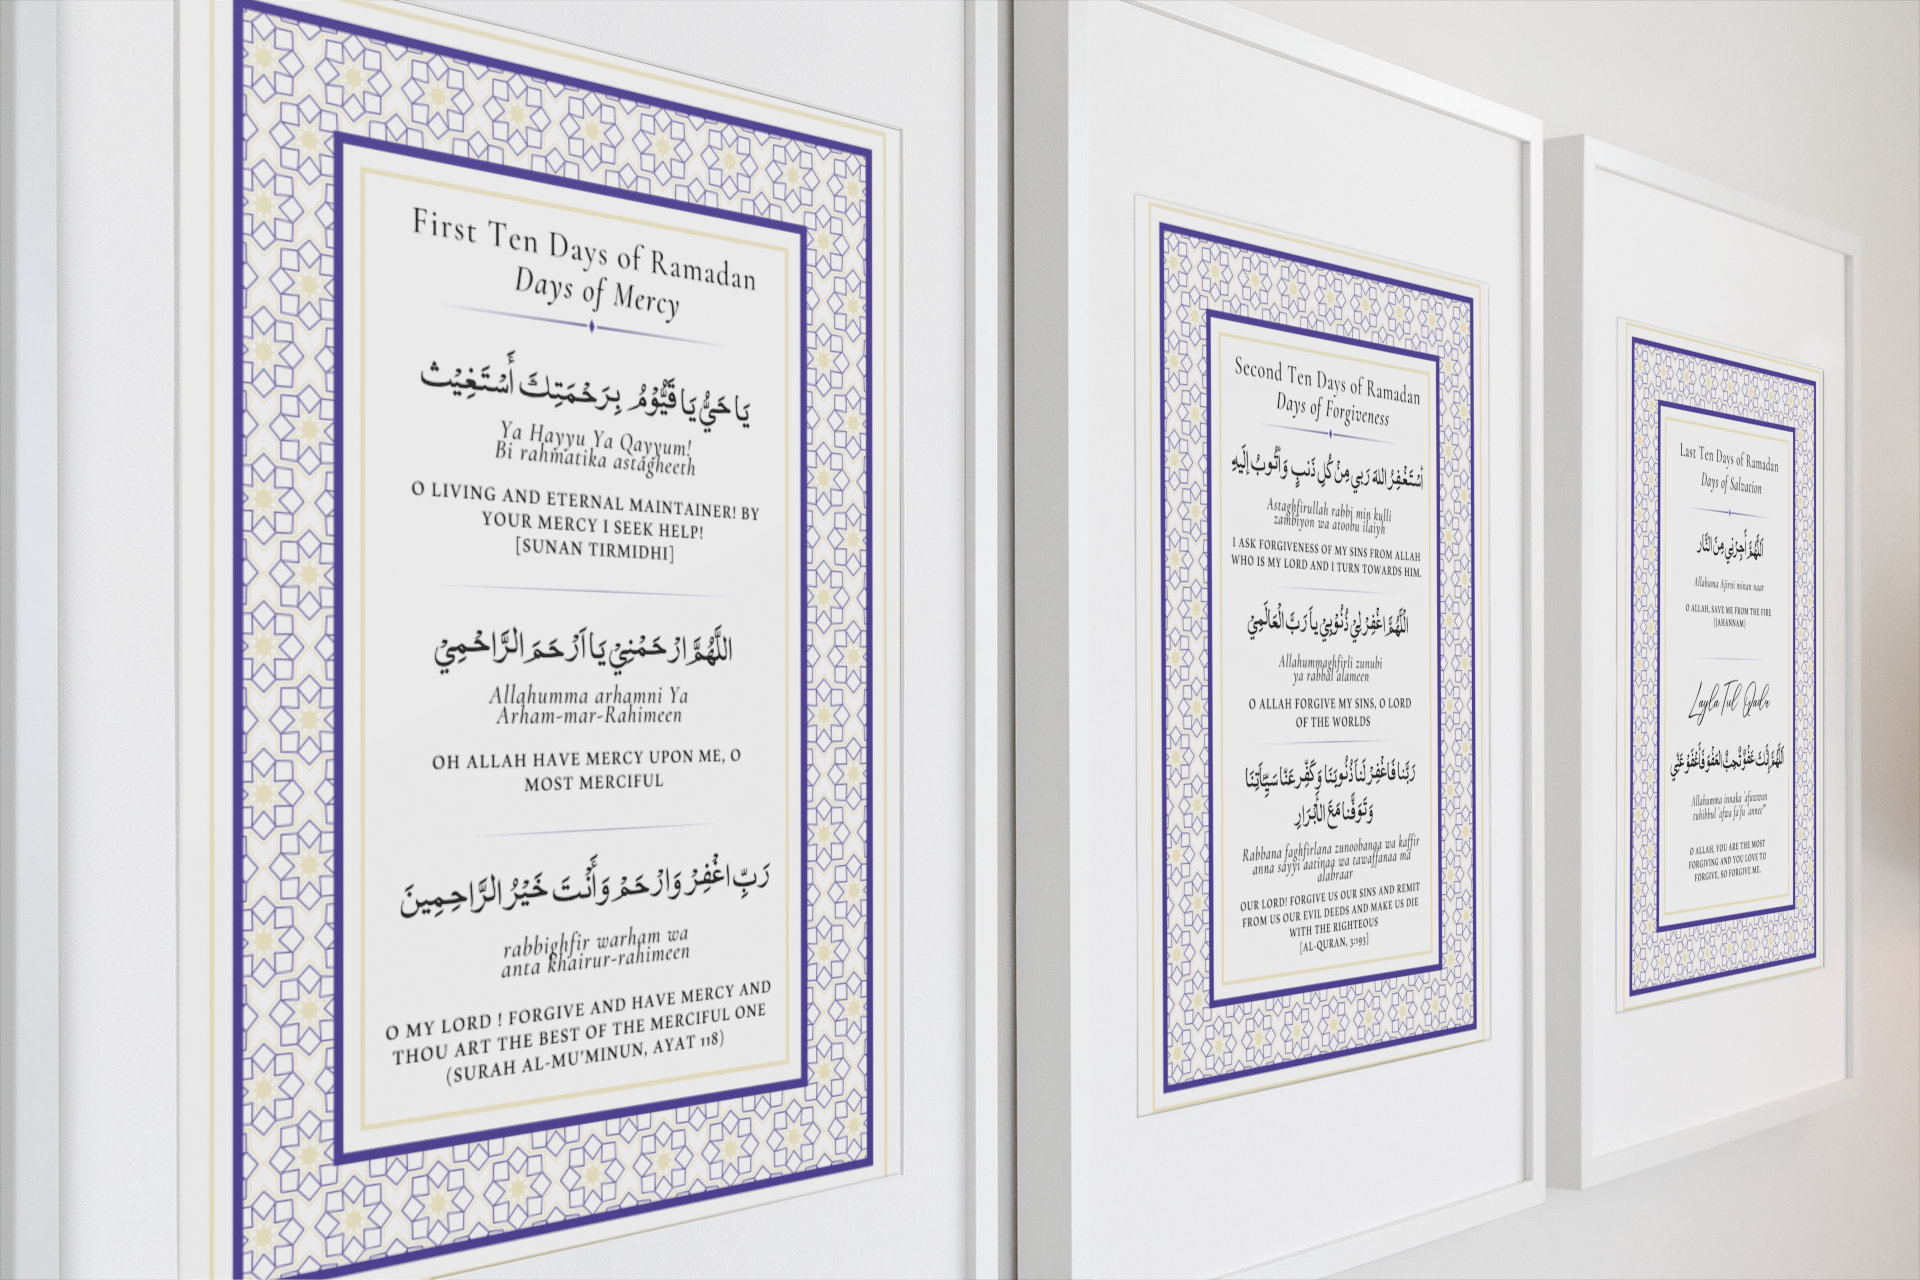 First Ten Days of Ramadan
Days of Mercy
يَا حَيُّ يَا قَيُّوْمُ بِرَحْمَتِكَ أَسْتَغِيْث
Ya Hayyu Ya Qayyum!
Bi rahmatika astagheeth
O LIVING AND ETERNAL MAINTAINER! BY
YOUR MERCY I SEEK HELP!
[SUNAN TIRMIDHI]
اللَّهُمَّ ارْحَمْنِيْ يَا اَرْحَمَ الرَّاحْمِيْ
Allahumma arhamni Ya
Arham-mar-Rahimeen
OH ALLAH HAVE MERCY UPON ME, O
MOST MERCIFUL
رَبِّ اغْفِرْ وَارْحَمْ وَأَنْتَ خَيْرُ الرَّاحِمِينَ
rabbighfir warham wa
anta khairur-rahimeen
O MY LORD ! FORGIVE AND HAVE MERCY AND
THOU ART THE BEST OF THE MERCIFUL ONE
(SURAH AL-MU'MINUN, AYAT 118)
Second Ten Days of Ramadan
Days of Forgiveness
أَسْتَغْفِرُ اللهَ رَبي مِنْ كُلِ ذَنبٍ وَأتُوبُ إلَيهِ
Astaghfirullah rabbi min kulli
zambiyon wa atoobu ilaiyh
I ASK FORGIVENESS OF MY SINS FROM ALLAH
WHO IS MY LORD AND I TURN TOWARDS HIM.
اللَّهُمَّ اغْفِرْ لِيْ ذُنُوْبِيْ ياَ رَبَّ الْعَالَمِيْ
Allahummaghfirli zunubi
ya rabbal alameen
O ALLAH FORGIVE MY SINS, O LORD
OF THE WORLDS
رَبَّنا فَاغْفِرْ لَنا ذُنُوبَنَا وَكَفِّر عَنَّا سَيِّئَاتِنَا
وَتَوَفَّنا مَعَ الأَبْرَارِ
Rabbana faghfirlana zunoobanaa wa kaffir
anna sayyi aatinaa wa tawaffanaa ma
alabraar
OUR LORD! FORGIVE US OUR SINS AND REMIT
FROM US OUR EVIL DEEDS AND MAKE US DIE
WITH THE RIGHTEOUS
[AL-QURAN, 3:193]
Last Ten Days of Ramadan
Days of Salvation
اَللَّهُمَّ أَجِرْنِي مِنَ النَّار
Allahuma Ajirni minan naar
O ALLAH, SAVE ME FROM THE FIRE
(JAHANNAM)
Layla Tul Qadr
اَللَّهُمَّ إِنَّكَ عَفُوٌّ تُحِبُّ العَفْوَ فَأَعْفُو عَنّي
Allahumma innaka 'afuwwun
tuhibbul 'afwa fa'fu 'annee"
O ALLAH, YOU ARE THE MOST
FORGIVING AND YOU LOVE TO
FORGIVE, SO FORGIVE ME.